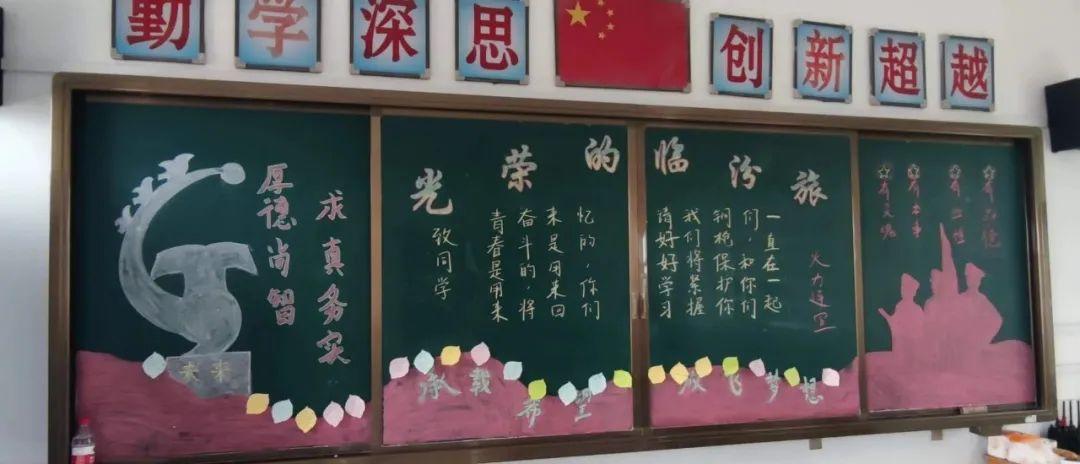 勤学深思
创新超越
厚德尚智
求真务实
未来
光荣的临汾旅
致同学
青春是用来
奋斗的,将
来是用来回
忆的,你们
请好好学习
我们将紧握
钢枪保护你
们,和你们
一直在一起
火力连 宣
有灵魂
有本事
有血性
有品德
承载希望
放飞梦想